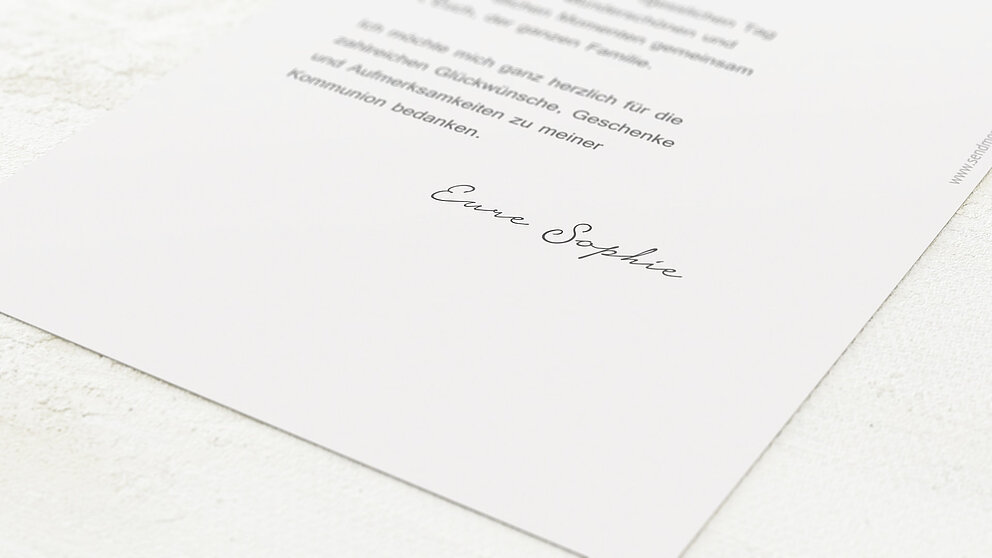 Tag
und
Momenten gemeinsam
der ganzen Familie.
Ich möchte mich ganz herzlich für die
zahlreichen Glückwünsche, Geschenke
und Aufmerksamkeiten zu meiner
Kommunion bedanken.
Eure Sophie